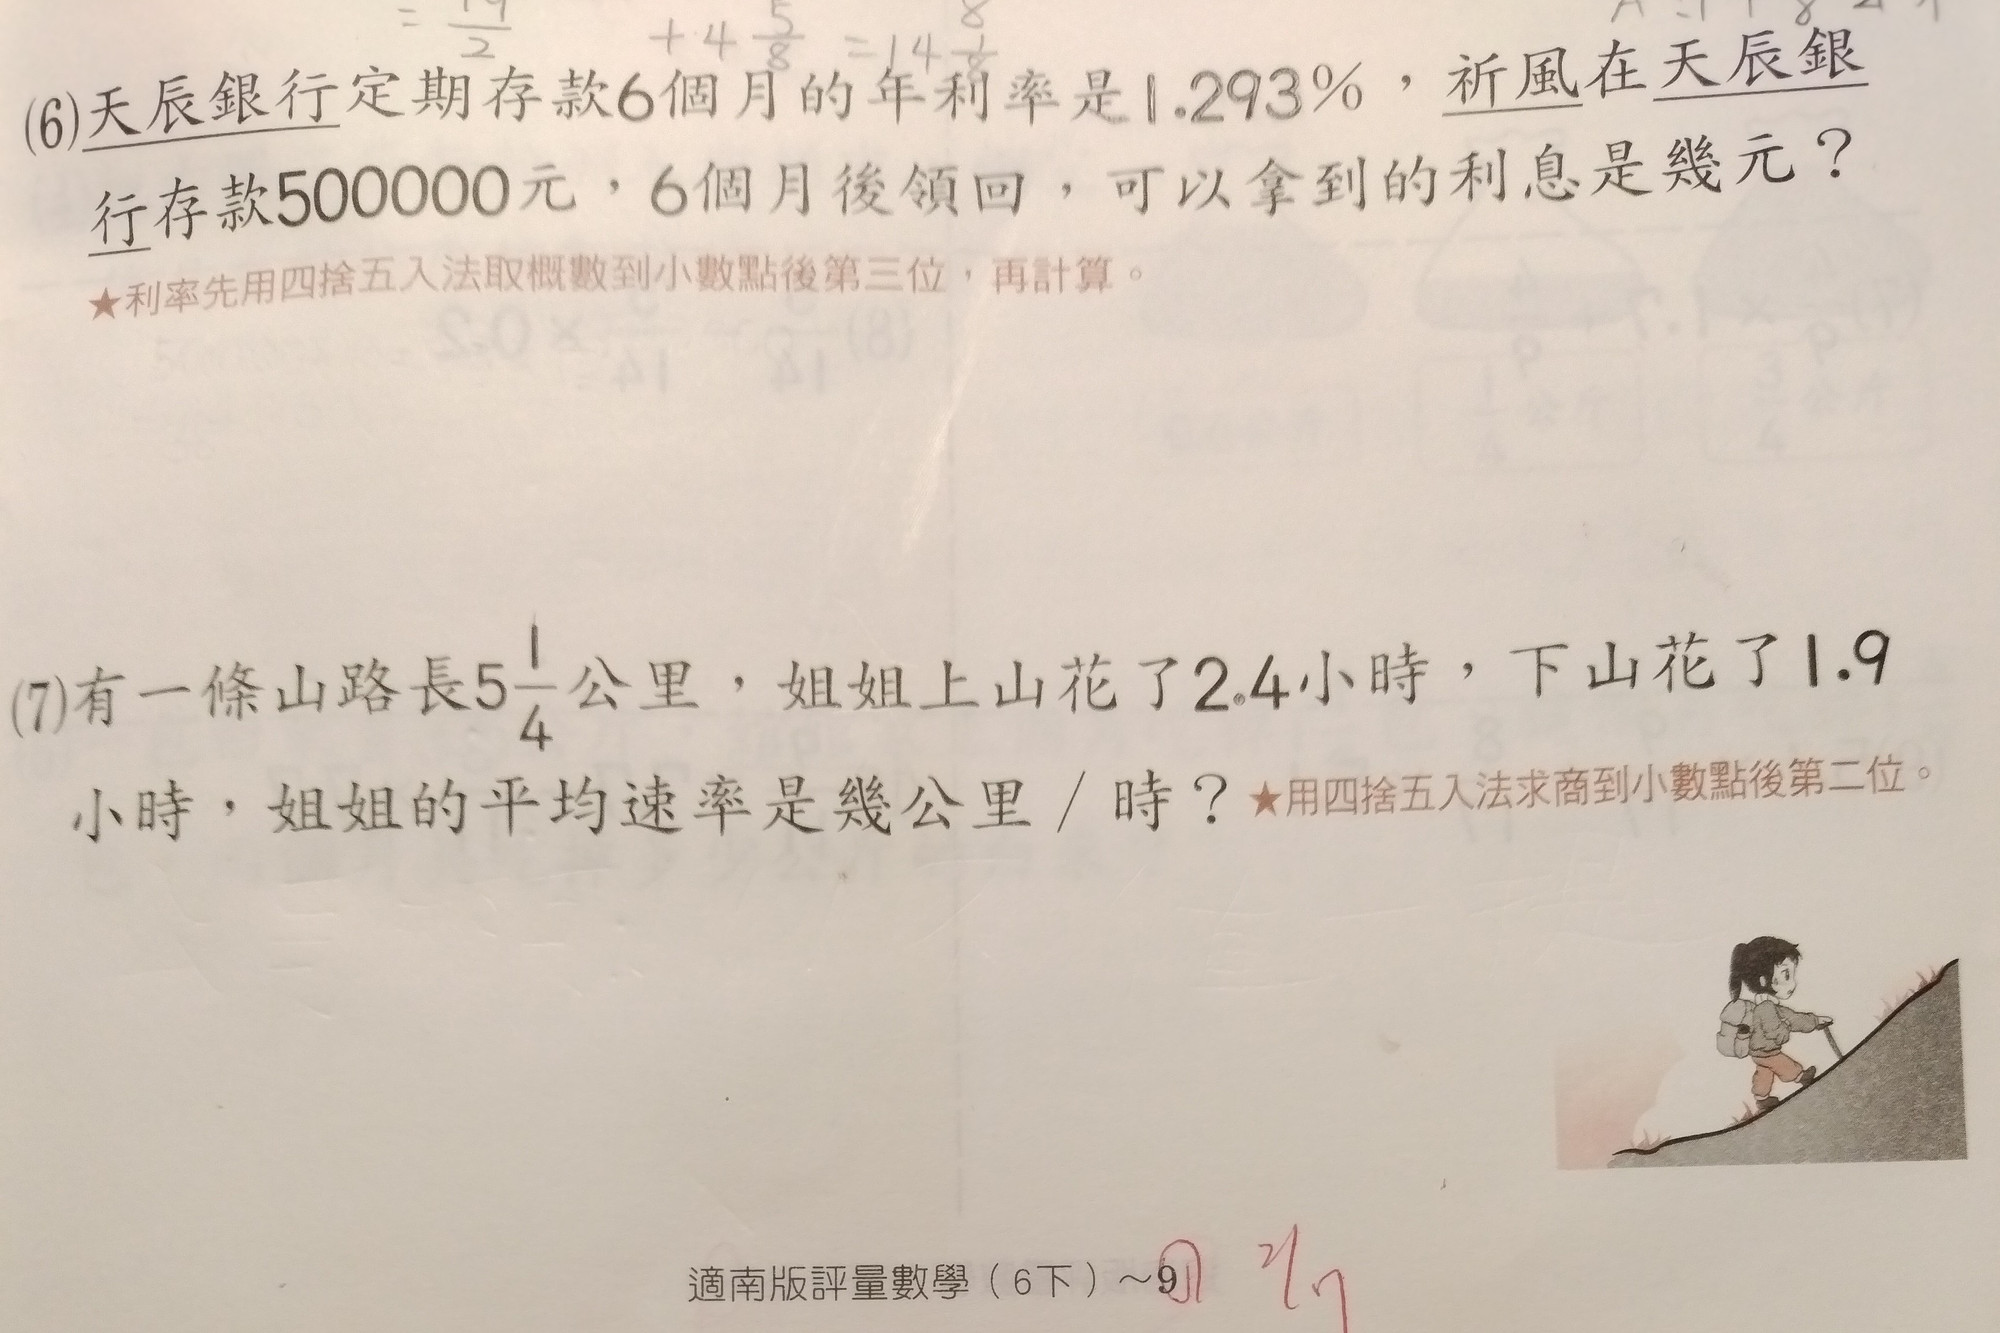 +4 5/8 =14
(6)天辰銀行定期存款6個月的年利率是1.293%，祈風在天辰銀
行存款500000元，6個月後領回，可以拿到的利息是幾元？
★利率先用四捨五入法取概數到小數點後第三位，再計算。
(7)有一條山路長5 1/4公里，姐姐上山花了2.4小時，下山花了1.9
小時，姐姐的平均速率是幾公里/時？★用四捨五入法求商到小數點後第二位。
適南版評量數學（6下）～9